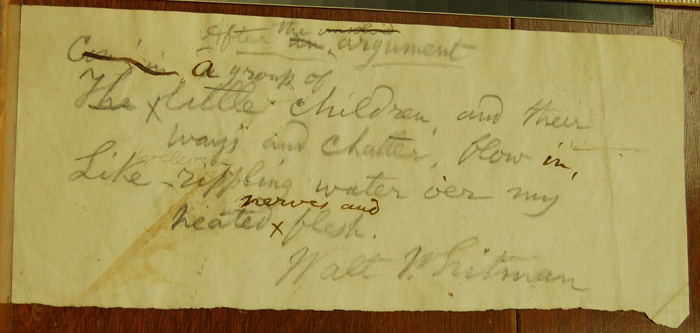 After the an argument
a group of
The little children, and their
ways and chatter, flow in,
Like welcome rippling water o'er my
nerves and
heated flesh.
Walt Whitman